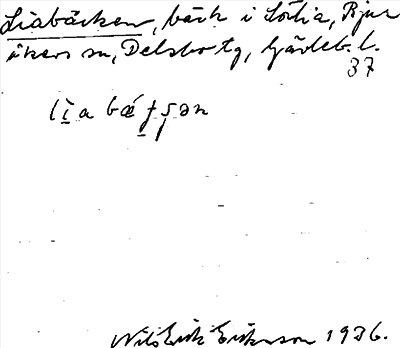 Liabäcken, bäck i Sörlia, Bjur
åkers sn, Delsbo tg, Gävleb. l.
37
lia bæ
Nils Erik Eriksson 1936.